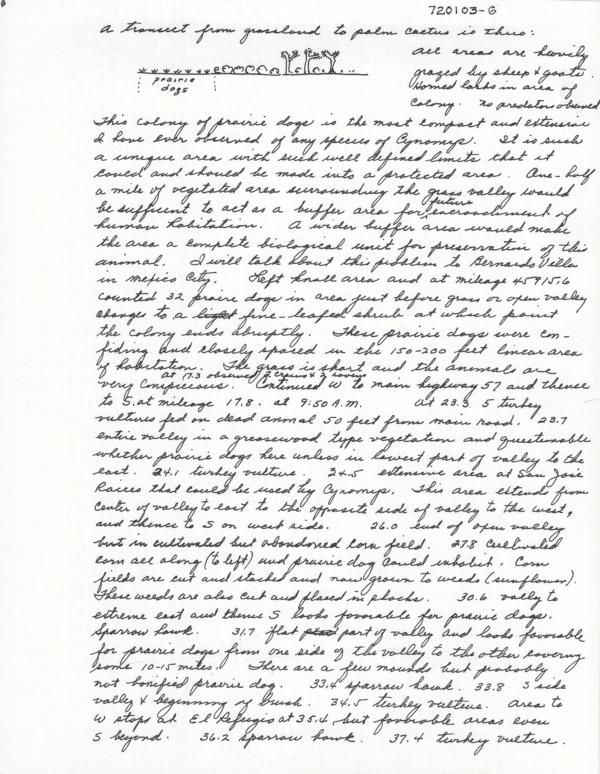 720103-6
A transect from grassland to palm cactus is thus:
prairie
dogs
All areas are heavily
grazed by sheep & goats.
Horned larks in area of
Colony. No predators observed
This colony of prairie dogs is the most compact and extensive
I have ever observed of any species of Cynomys. It is such
a unique area with such well defined limits that it
could and should be made into a protected area. One-half
a mile of vegetated area surrounding the grass valley would
be sufficient to act as a buffer area for future encroachment of
human habitation. A wider buffer area would make
the area a complete biological unit for preservation of this
animal. I will talk about this problem to Bernardo Villa
in Mexico City. Left knoll area and at mileage 45915.6
counted 32 prairie dogs in area just before grass or open valley
changes to a light fine-leafed shrub at which point
the colony ends abruptly. These prairie dogs were con-
fiding and closely spaced in the 150-200 feet linear area
of habitation. The grass is short and the animals are
at 17.3 observed 2 crows & 2 ravens
very conspicuous. Continued W to main highway 57 and thence
to S. at mileage 17.8. at 9:50 A.M. At 23.3 5 turkey
vultures fed on dead animal 50 feet from main road. 23.7
entire valley in a greasewood type vegetation and questionable
whether prairie dogs here unless in lowest part of valley to the
east. 24.1 turkey vulture. 24.5 extensive area at San José
Raices that could be used by Cynomys. This area extends from
center of valley to east to the opposite side of valley to the west,
and thence to S on west side. 26.0 end of open valley
but in cultivated but abandoned corn field. 27.8 cultivated
corn all along (to left) and prairie dog could inhabit. Corn
fields are cut and stacked and now grown to weeds (sunflower).
These weeds are also cut and placed in shocks. 30.6 valley to
extreme east and thence S looks favorable for prairie dogs.
Sparrow hawk. 31.7 flat part of valley and looks favorable
for prairie dogs from one side of the valley to the other covering
some 10-15 miles. There are a few mounds but probably
not bonified prairie dog. 33.4 sparrow hawk. 33.8 S side
valley & beginning of brush. 34.5 turkey vulture. Area to
W stops at El Refugio at 35.4, but favorable areas even
S beyond. 36.2 sparrow hawk. 37.4 turkey vulture.